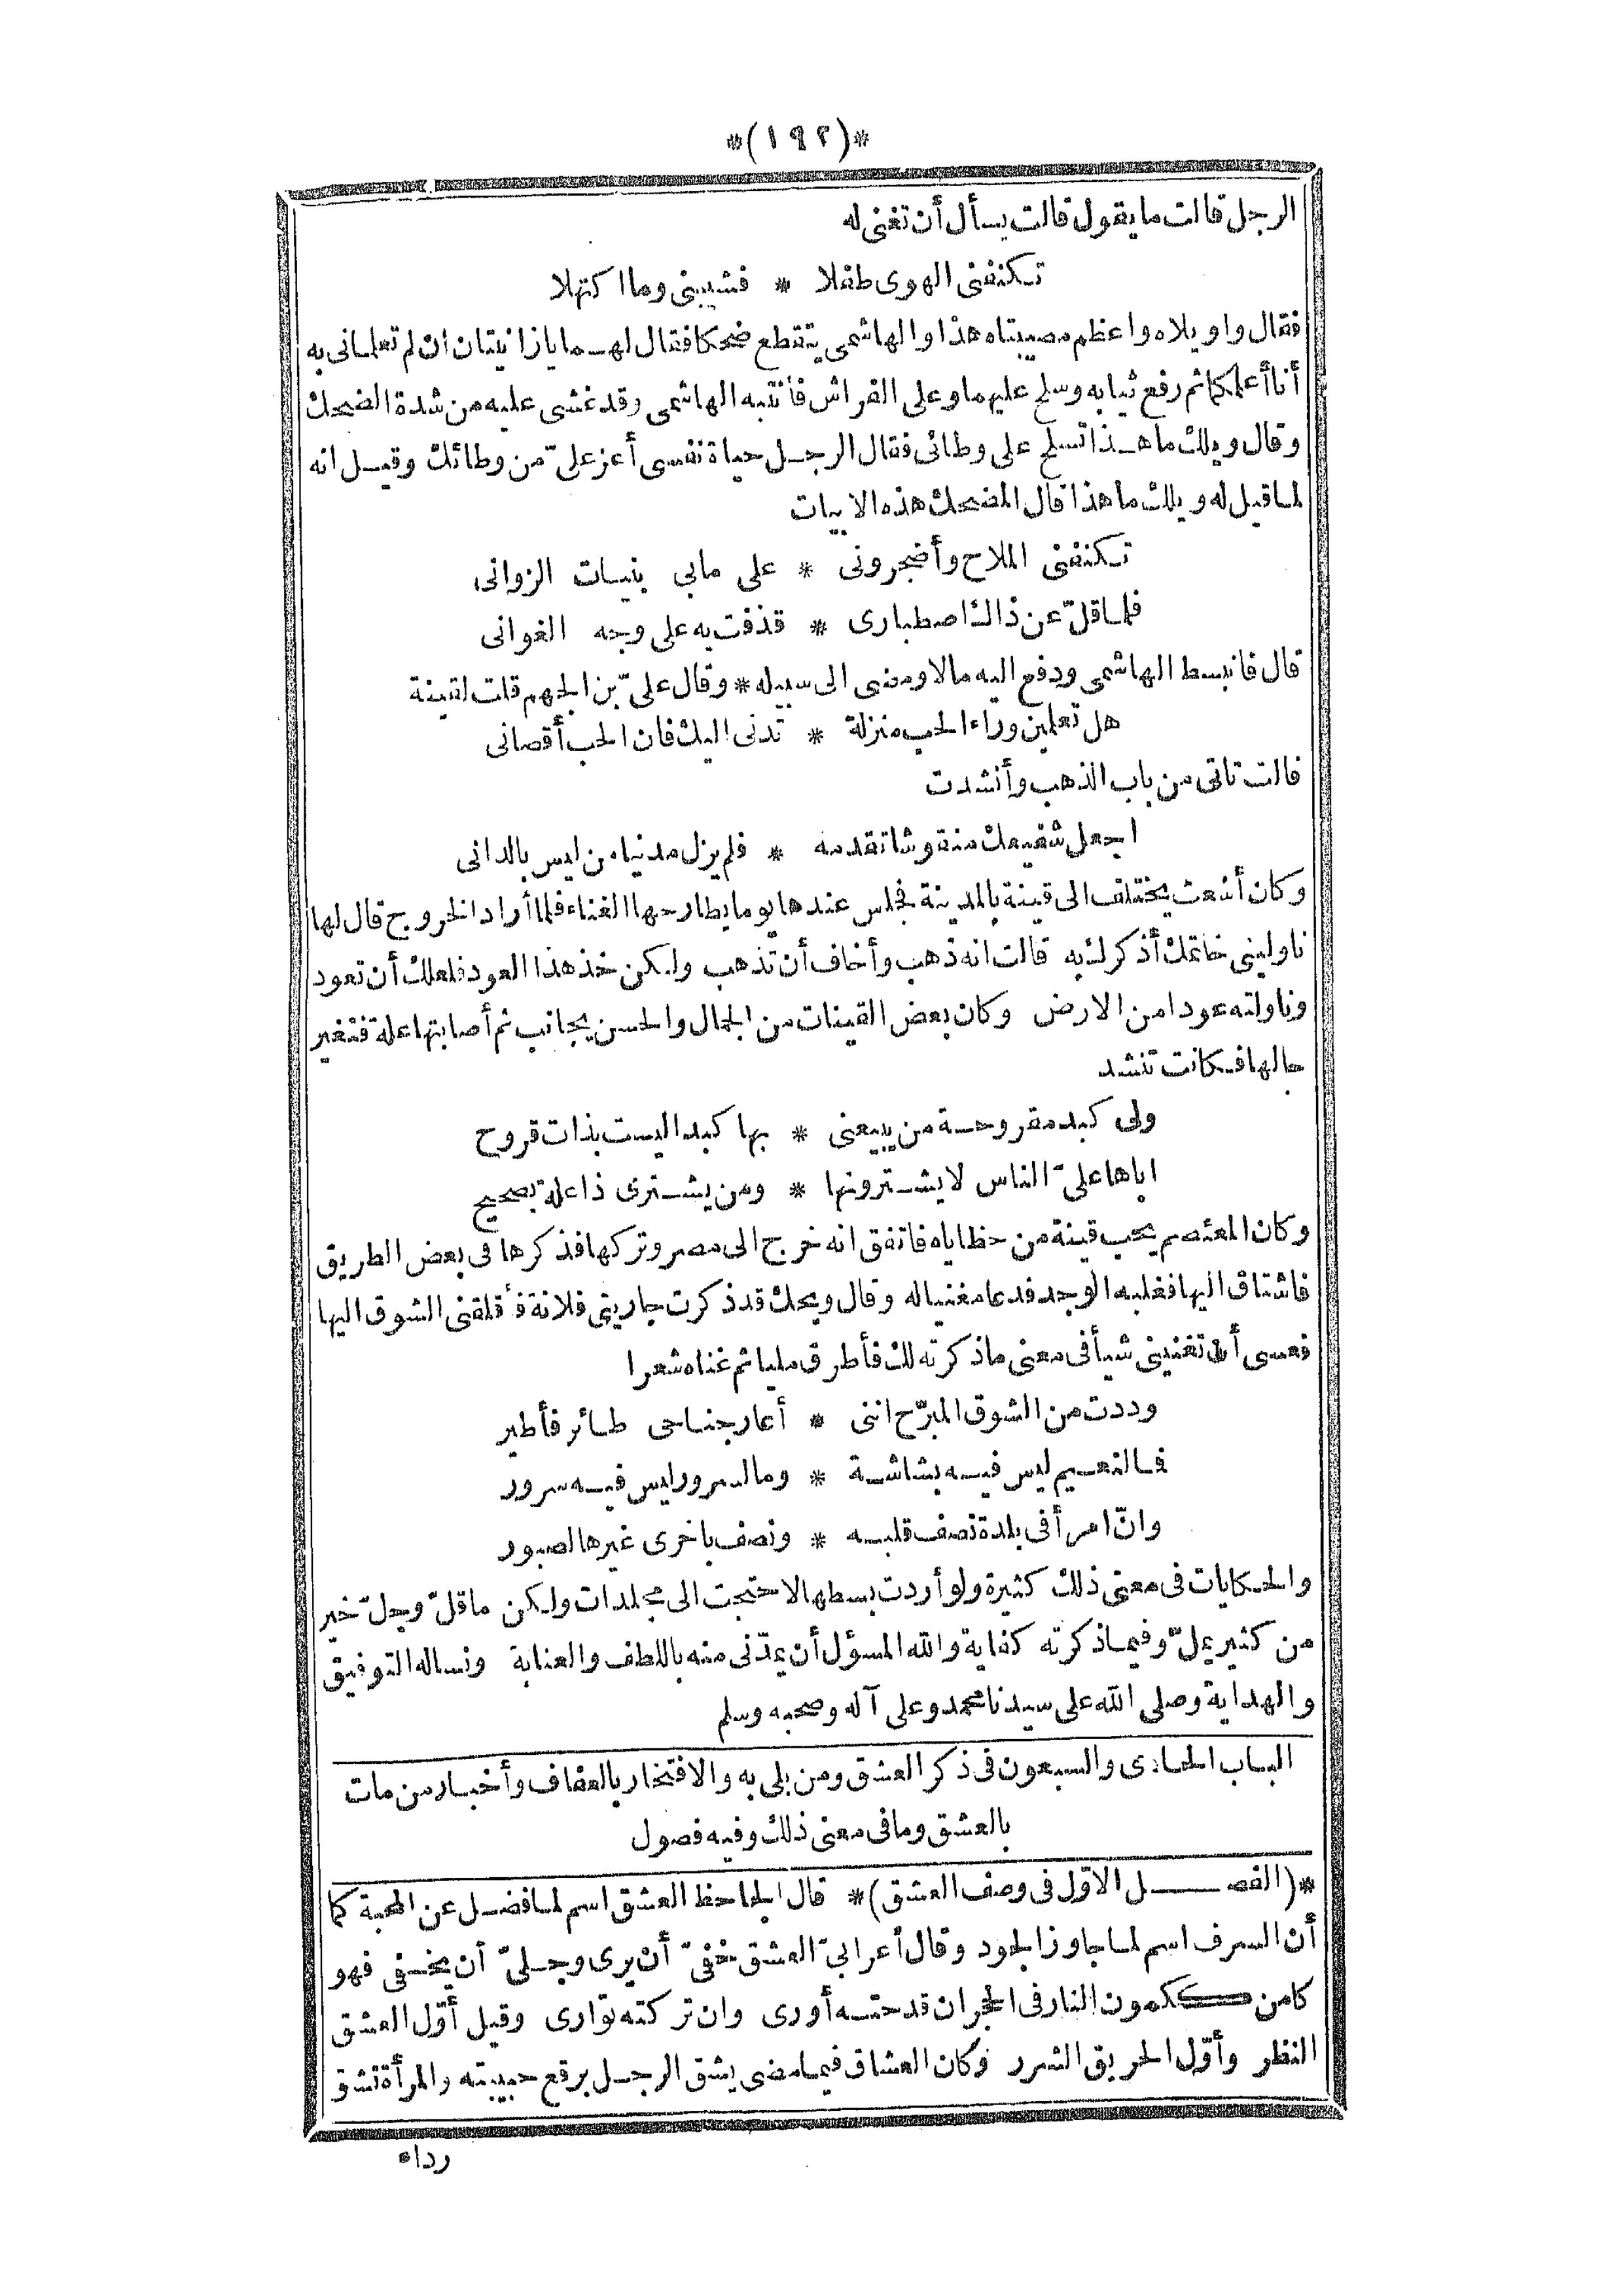 *(١٩٢)*
الرجل قالت ما يقول قالت يسأل أن تغنى له
تكنفنى الهوى طفلا * فشيبنى وما اكتهلا
فقال واويلاه واعظم مصيبتاه هذا والهاشمى يتقطع ضحكا فقال لهما يا زانيتان ان لم تعلمانى به
أنا أعلمكما ثم رفع ثيابه وسلح عليهما وعلى الفراش فانتبه الهاشمى وقد غشى عليه من شدة الضحك
وقال ويلك ما هذا تسلح على وطائى فقال الرجل حياة نفسى أعز علىّ من وطائك وقيل انه
لما قيل له ويلك ما هذا قال المضحك هذه الابيات
تكنفنى الملاح وأضجرونى * على مابى بنيات الزوانى
فلما قلّ عن ذاك اصطبارى * قذفت به على وجه الغوانى
قال فانبسط الهاشمى ودفع اليه مالا ومضى الى سبيله * وقال علىّ بن الجهم قلت لقينة
هل تعلمين وراء الحب منزلة * تدنى اليك فان الحب أقصانى
قالت تاتى من باب الذهب وأنشدت
اجعل شفيعك منقوشا تقدمه * فلم يزل مدنيا من ليس بالدانى
وكان أشعث يختلف الى قينة بالمدينة فجلس عندها يوما يطارحها الغناء فلما أراد الخروج قال لها
ناولينى خاتمك أذكرك به قالت انه ذهب وأخاف أن تذهب ولكن خذ هذا العود فلعلك أن تعود
وناولته عودا من الارض وكان بعض القينات من الجمال والحسن بجانب ثم أصابتها علة فتغير
حالها فكانت تنشد
ولى كبد مقروحة من يبيعنى * بها كبدا ليست بذات قروح
اباها علىّ الناس لا يشترونها * ومن يشترى ذا علة بصحيح
وكان المعتصم يحب قينة من حظاياه فاتفق انه خرج الى مصر وتركها فذكرها فى بعض الطريق
فاشتاق اليها فغلبه الوجد فدعا مغنيا له وقال ويحك قد ذكرت جاريتى فلانة فأقلقنى الشوق اليها
فعسى أن تغنينى شيأ فى معنى ما ذكرته لك فأطرق مليا ثم غناه شعرا
وددت من الشوق المبرّح اننى * أعار جناحى طائر فأطير
فما لنعيم ليس فيه بشاشة * وما لسرور ليس فيه سرور
وانّ امرأ فى بلدة نصف قلبه * ونصف باخرى غيرها لصبور
والحكايات فى معنى ذلك كثيرة ولو أردت بسطها لاحتجت الى مجلدات ولكن ما قلّ وجلّ خير
من كثير يملّ وفيما ذكرته كفاية والله المسؤل أن يمدّنى منه باللطف والعناية ونساله التوفيق
والهداية وصلى الله على سيدنا محمد وعلى آله وصحبه وسلم
الباب الحادى والسبعون فى ذكر العشق ومن بلى به والافتخار بالعفاف وأخبار من مات
بالعشق وما فى معنى ذلك وفيه فصول
*(الفصل الاوّل فى وصف العشق)* قال الجاحظ العشق اسم لما فضل عن المحبة كما
أن السرف اسم لما جاوز الجود وقال أعرابىّ العشق خفىّ أن يرى وجلىّ أن يخفى فهو
كامن ككمون النار فى الحجر ان قدحته أورى وان تركته توارى وقيل أوّل العشق
النظر وأوّل الحريق الشرر وكان العشاق فيما مضى يشق الرجل برقع حبيبته والمرأة تشق
رداء